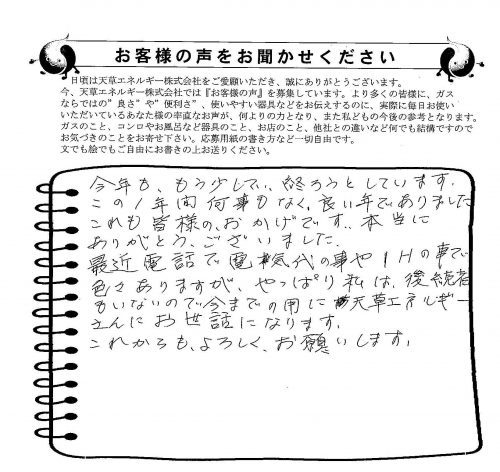 お客様の声をお聞かせください
日頃は天草エネルギー株式会社をご愛顧いただき、誠にありがとうございます。
今、天草エネルギー株式会社では『お客様の声』を募集しています。より多くの皆様に、ガス
ならではの”良さ”や”便利さ”、使いやすい器具などをお伝えするのに、実際に毎日お使い
いただいているあなた様の率直なお声が、何よりの力となり、また私どもの今後の参考となります。
ガスのこと、コンロやお風呂など器具のこと、お店のこと、他社との違いなど何でも結構ですので
お気づきのことをお寄せ下さい。応募用紙の書き方など一切自由です。
文でも絵でもご自由にお書きの上お送りください。
今年も、もう少しで、終ろうとしています。
この1年間何事もなく、良い年でありました
これも皆様の、おかげです。本当に
ありがとう、ございました。
最近電話で電気代の事やIHの事で
色々ありますが、やっぱり私は、後続者
もいないので今までの用に天草エネルギー
さんにお世話になります。
これからも、よろしく、お願いします。